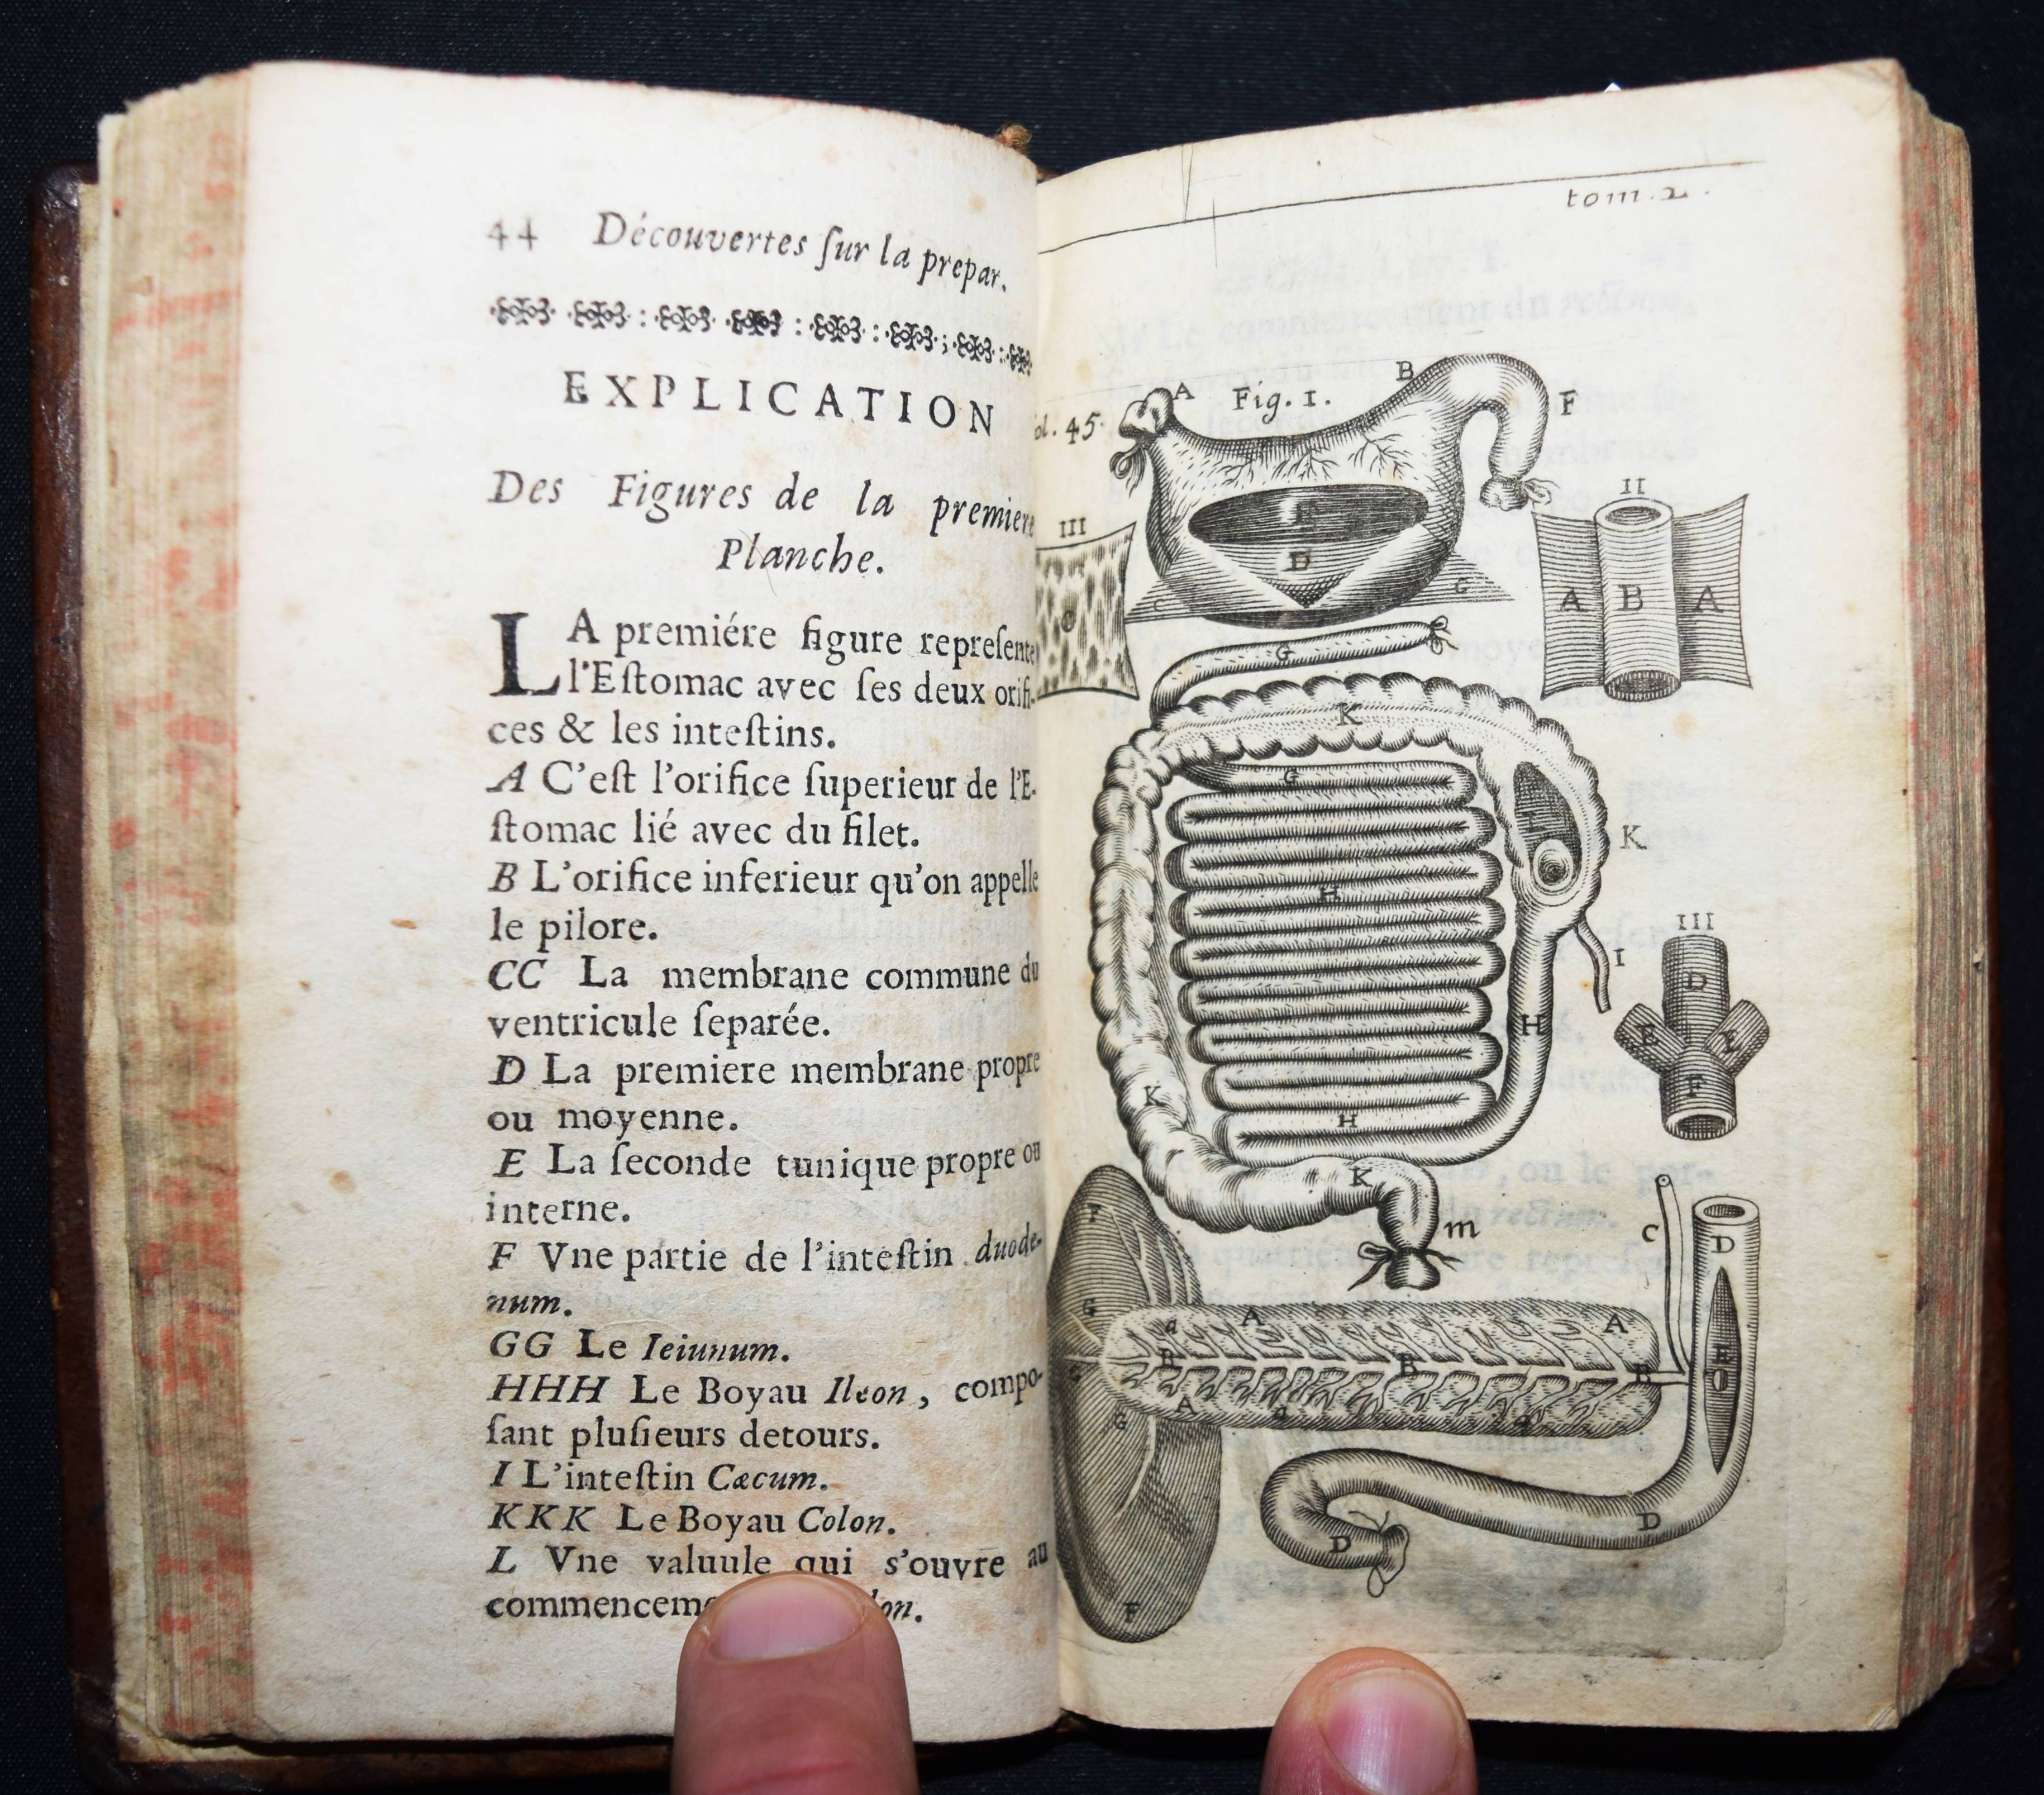 44 Découvertes ſur la prepar.
EXPLICATION
Des Figures de la premiere
Planche.
LA premiére figure repreſente
l'Eſtomac avec ſes deux orifi-
ces & les inteſtins.
A C'eſt l'orifice ſuperieur de l'E-
ſtomac lié avec du filet.
B L'orifice inferieur qu'on appelle
le pilore.
CC La membrane commune du
ventricule ſeparée.
D La premiere membrane propre
ou moyenne.
E La ſeconde tunique propre ou
interne.
F Vne partie de l'inteſtin duode-
num.
GG Le Ieiunum.
HHH Le Boyau Ileon, compo-
ſant pluſieurs detours.
I L'inteſtin Cæcum.
KKK Le Boyau Colon.
L Vne valuule qui s'ouvre au
tom. 2.
45.
Fig. 1.
A
B
F
E
D
C
G
III
C
II
A B A
G
K
G
K
H
I
H
K
H
K
m
III
D
E E
F
C
D
E
F
G
A
a
A
B
B
B
G
A
a
a
D
D
F